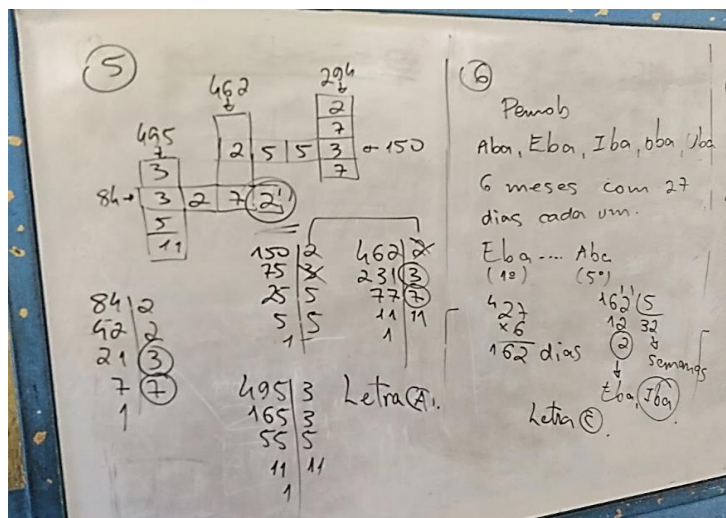 5
495
3
84→ 3 2 7 2
5
11
462
2 5 5 3 ← 150
294
2
7
3
7
150 | 2
75 | 3
25 | 5
5 | 5
1
462 | 2
231 | 3
77 | 7
11 | 11
1
84 | 2
42 | 2
21 | 3
7 | 7
1
495 | 3
165 | 3
55 | 5
11 | 11
1
Letra A.
6
Aba, Eba, Iba, Oba, Uba
6 meses com 27
dias cada um.
Eba .... Aba
(1º) (5º)
27
×6
162 dias
162 | 5
12 32
2 semanas
Eba, Iba
Letra E.